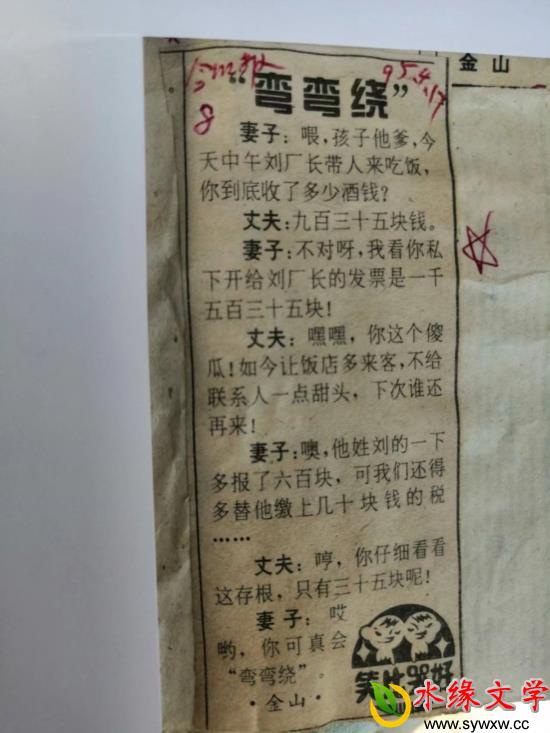 金山
95.4.17
8
“弯弯绕”
妻子：喂，孩子他爹，今
天中午刘厂长带人来吃饭，
你到底收了多少酒钱？
丈夫：九百三十五块钱。
妻子：不对呀，我看你私
下开给刘厂长的发票是一千
五百三十五块！
丈夫：嘿嘿，你这个傻
瓜！如今让饭店多来客，不给
联系人一点甜头，下次谁还
再来！
妻子：噢，他姓刘的一下
多报了六百块，可我们还得
多替他缴上几十块钱的税
……
丈夫：哼，你仔细看看
这存根，只有三十五块呢！
妻子：哎
哟，你可真会
“弯弯绕”。
·金山·
笑比哭好
水缘文学
www.sywxw.cc